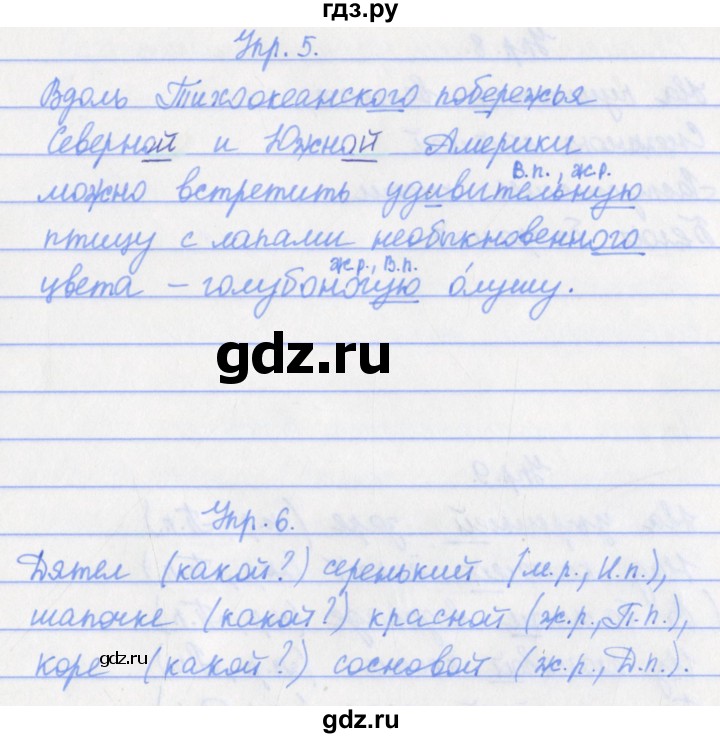 гдз.ру
Упр. 5.
Вдоль Тихоокеанского побережья
Северной и Южной Америки
В.п., ж.р.
можно встретить удивительную
птицу с лапами необыкновенного
ж.р., В.п.
цвета – голубоногую о́лушу.
gdz.ru
Упр. 6.
Дятел (какой?) серенький (м.р., И.п.),
шапочке (какой?) красной (ж.р., П.п.),
коре (какой?) сосновой (ж.р., Д.п.).
gdz.ru
gdz.ru